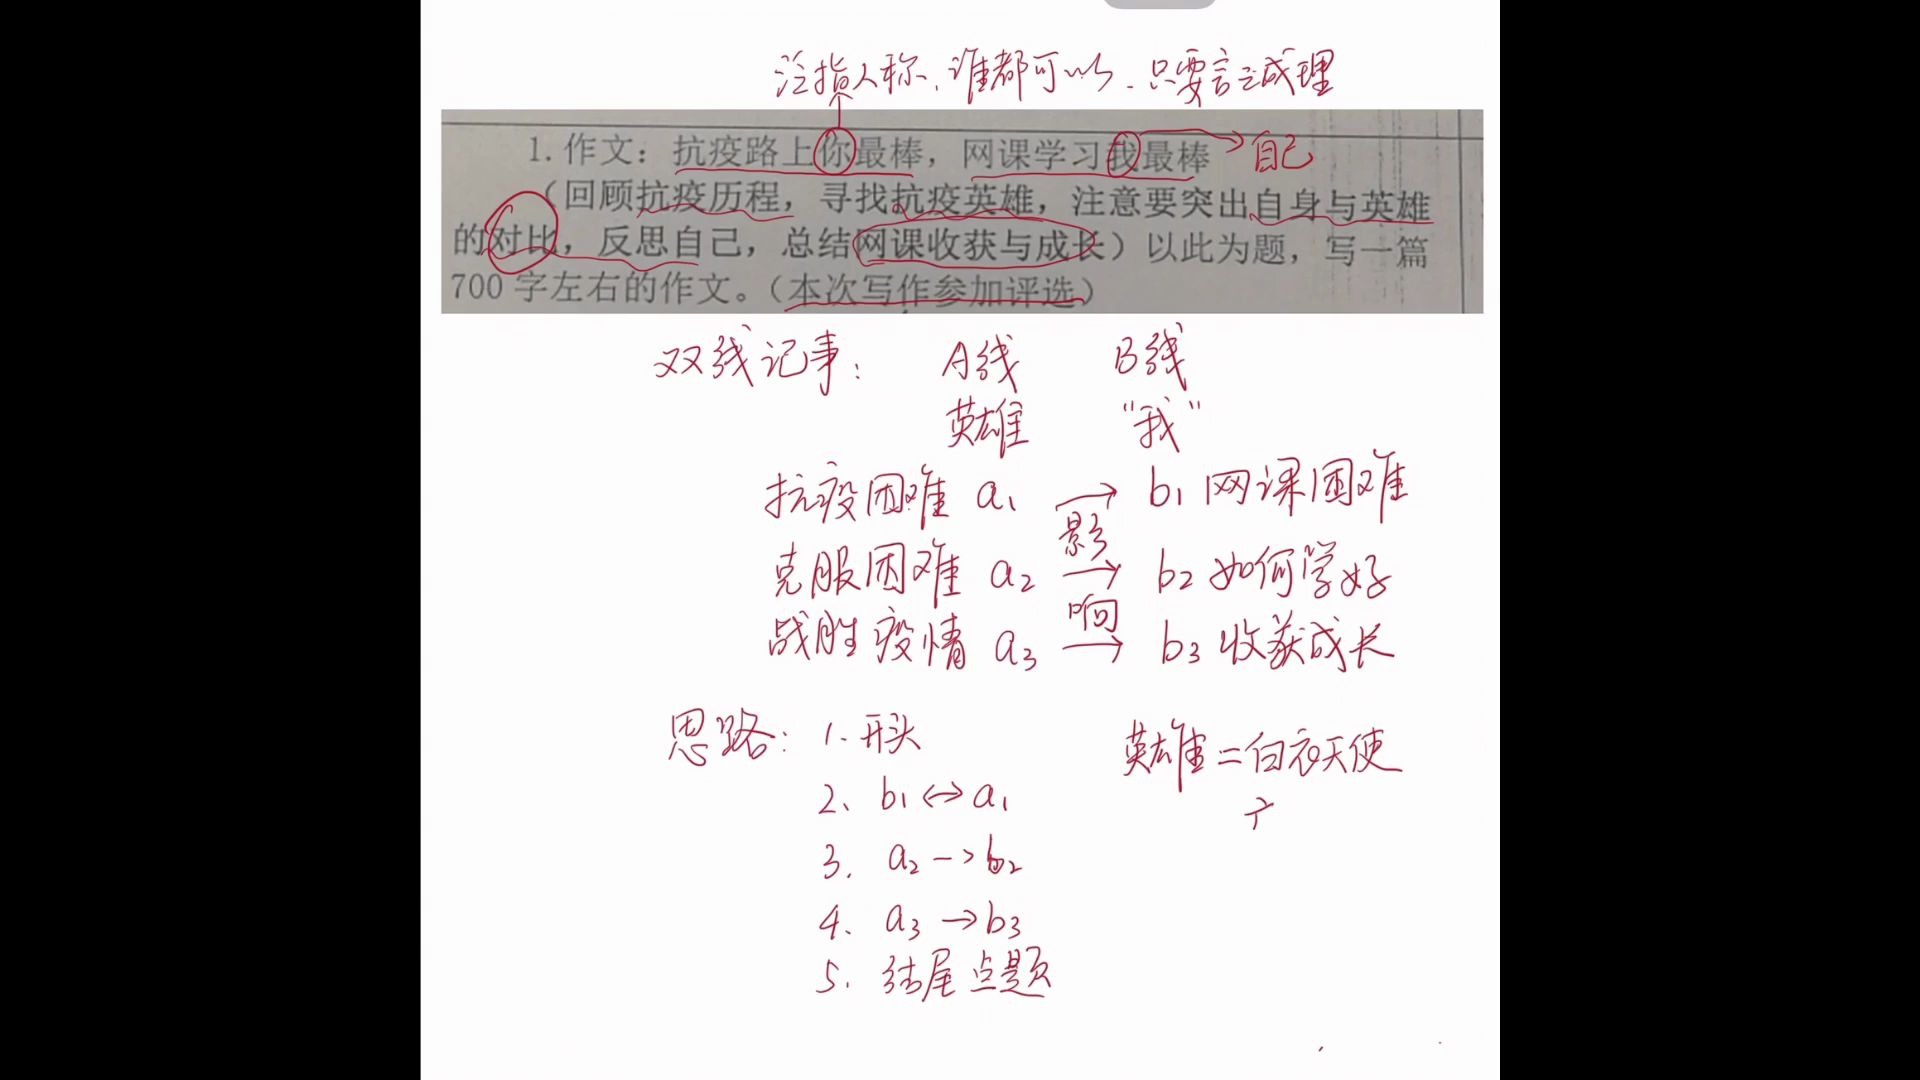 泛指人称、谁都可以.只要言之成理
1.作文：抗疫路上你最棒，网课学习我最棒 自己
（回顾抗疫历程，寻找抗疫英雄，注意要突出自身与英雄
的对比，反思自己，总结网课收获与成长）以此为题，写一篇
700字左右的作文。（本次写作参加评选）
双线记事： A线 B线
英雄 “我”
抗疫困难 a1 → b1 网课困难
影
克服困难 a2 → b2 如何学好
响
战胜疫情 a3 → b3 收获成长
思路： 1. 开头 英雄=白衣天使
2、 b1 ↔ a1
3. a2 → b2
4. a3 → b3
5. 结尾点题